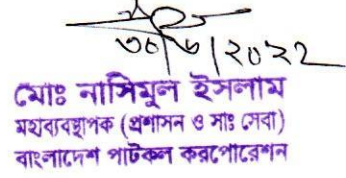 ৩০/৬/২০২২
মোঃ নাসিমুল ইসলাম
মহাব্যবস্থাপক (প্রশাসন ও সাঃ সেবা)
বাংলাদেশ পাটকল করপোরেশন